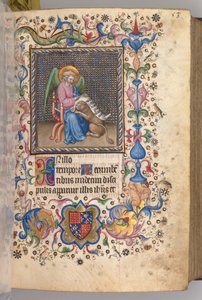 In illo
tempore Recumbē
tibus undecim disci
pulis apparuit illis ihūs et